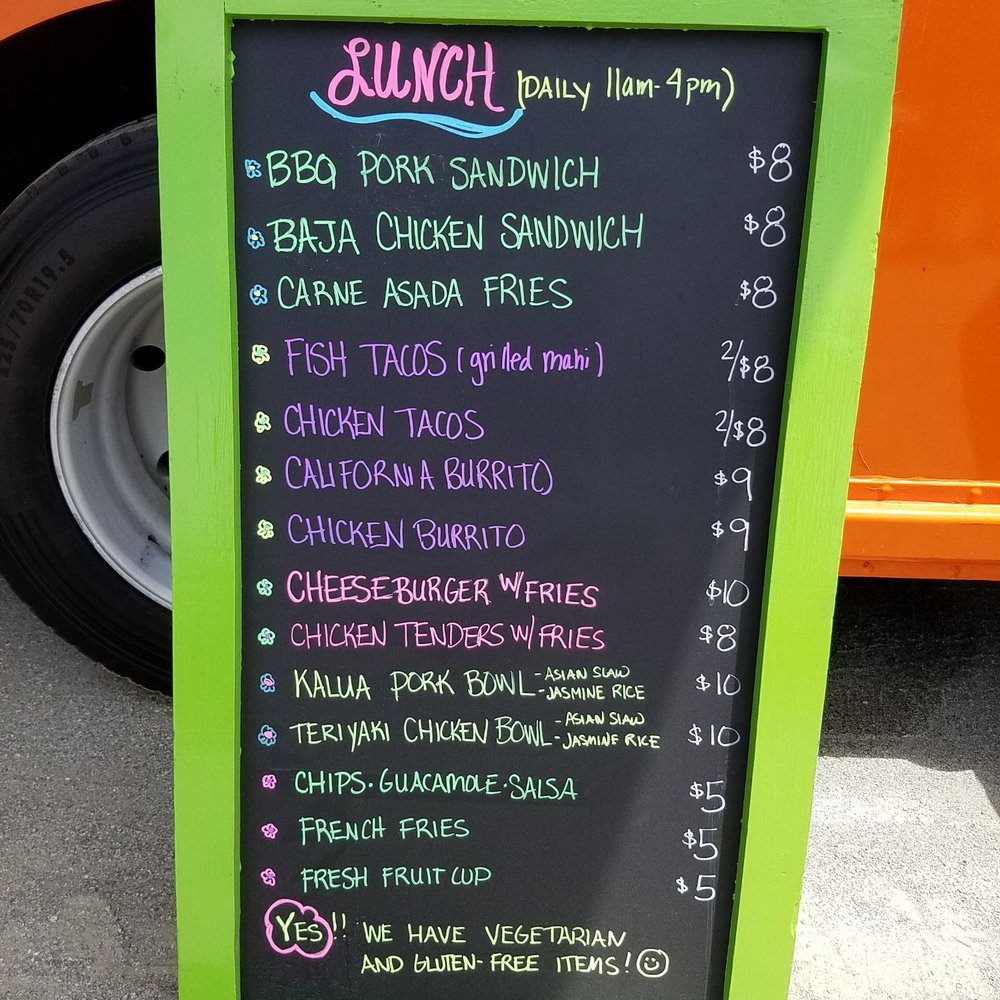 225/70R19.5
LUNCH (DAILY 11am-4pm)
BBQ PORK SANDWICH $8
BAJA CHICKEN SANDWICH $8
CARNE ASADA FRIES $8
FISH TACOS (grilled mahi) 2/$8
CHICKEN TACOS 2/$8
CALIFORNIA BURRITO $9
CHICKEN BURRITO $9
CHEESEBURGER W/FRIES $10
CHICKEN TENDERS W/FRIES $8
KALUA PORK BOWL -ASIAN SLAW $10
-JASMINE RICE
TERIYAKI CHICKEN BOWL -ASIAN SLAW $10
-JASMINE RICE
CHIPS·GUACAMOLE·SALSA $5
FRENCH FRIES $5
FRESH FRUIT CUP $5
YES!! WE HAVE VEGETARIAN
AND GLUTEN-FREE ITEMS!